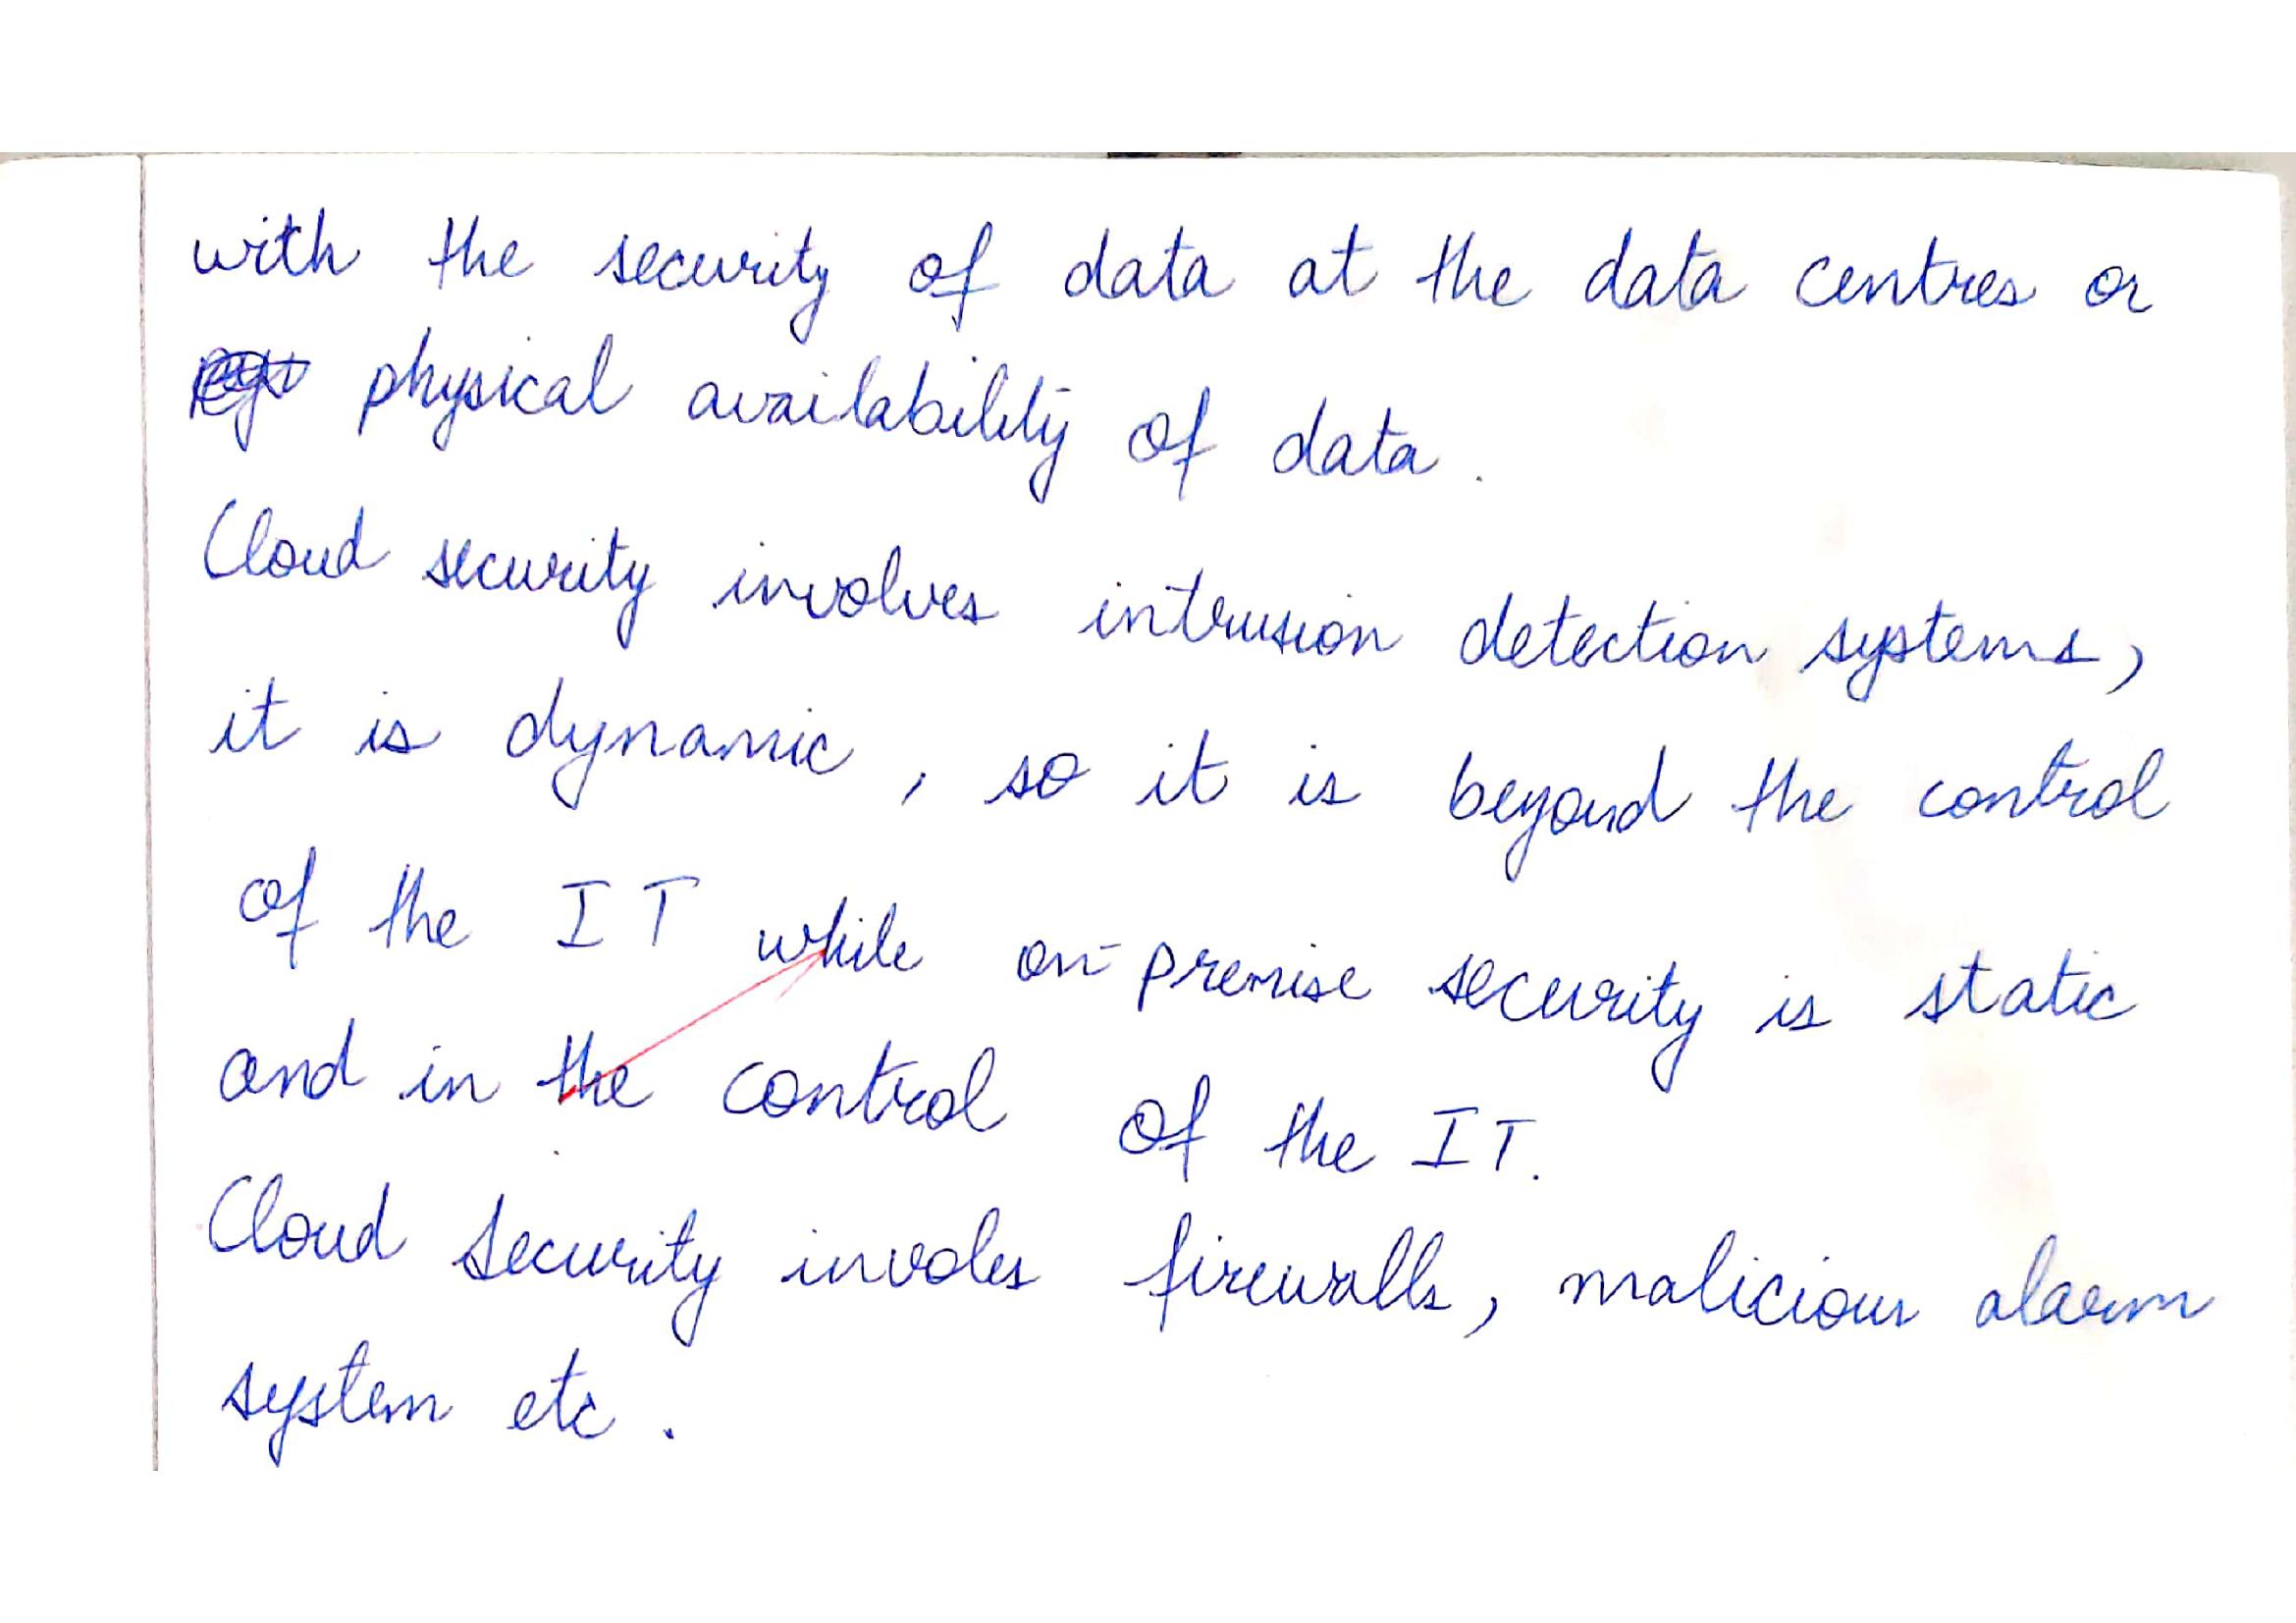 with the security of data at the data centres or
physical availability of data.
Cloud security involves intrusion detection systems,
it is dynamic, so it is beyond the control
of the IT while on-premise security is static
and in the control of the IT.
Cloud security involes firewalls, malicious alarm
system etc.